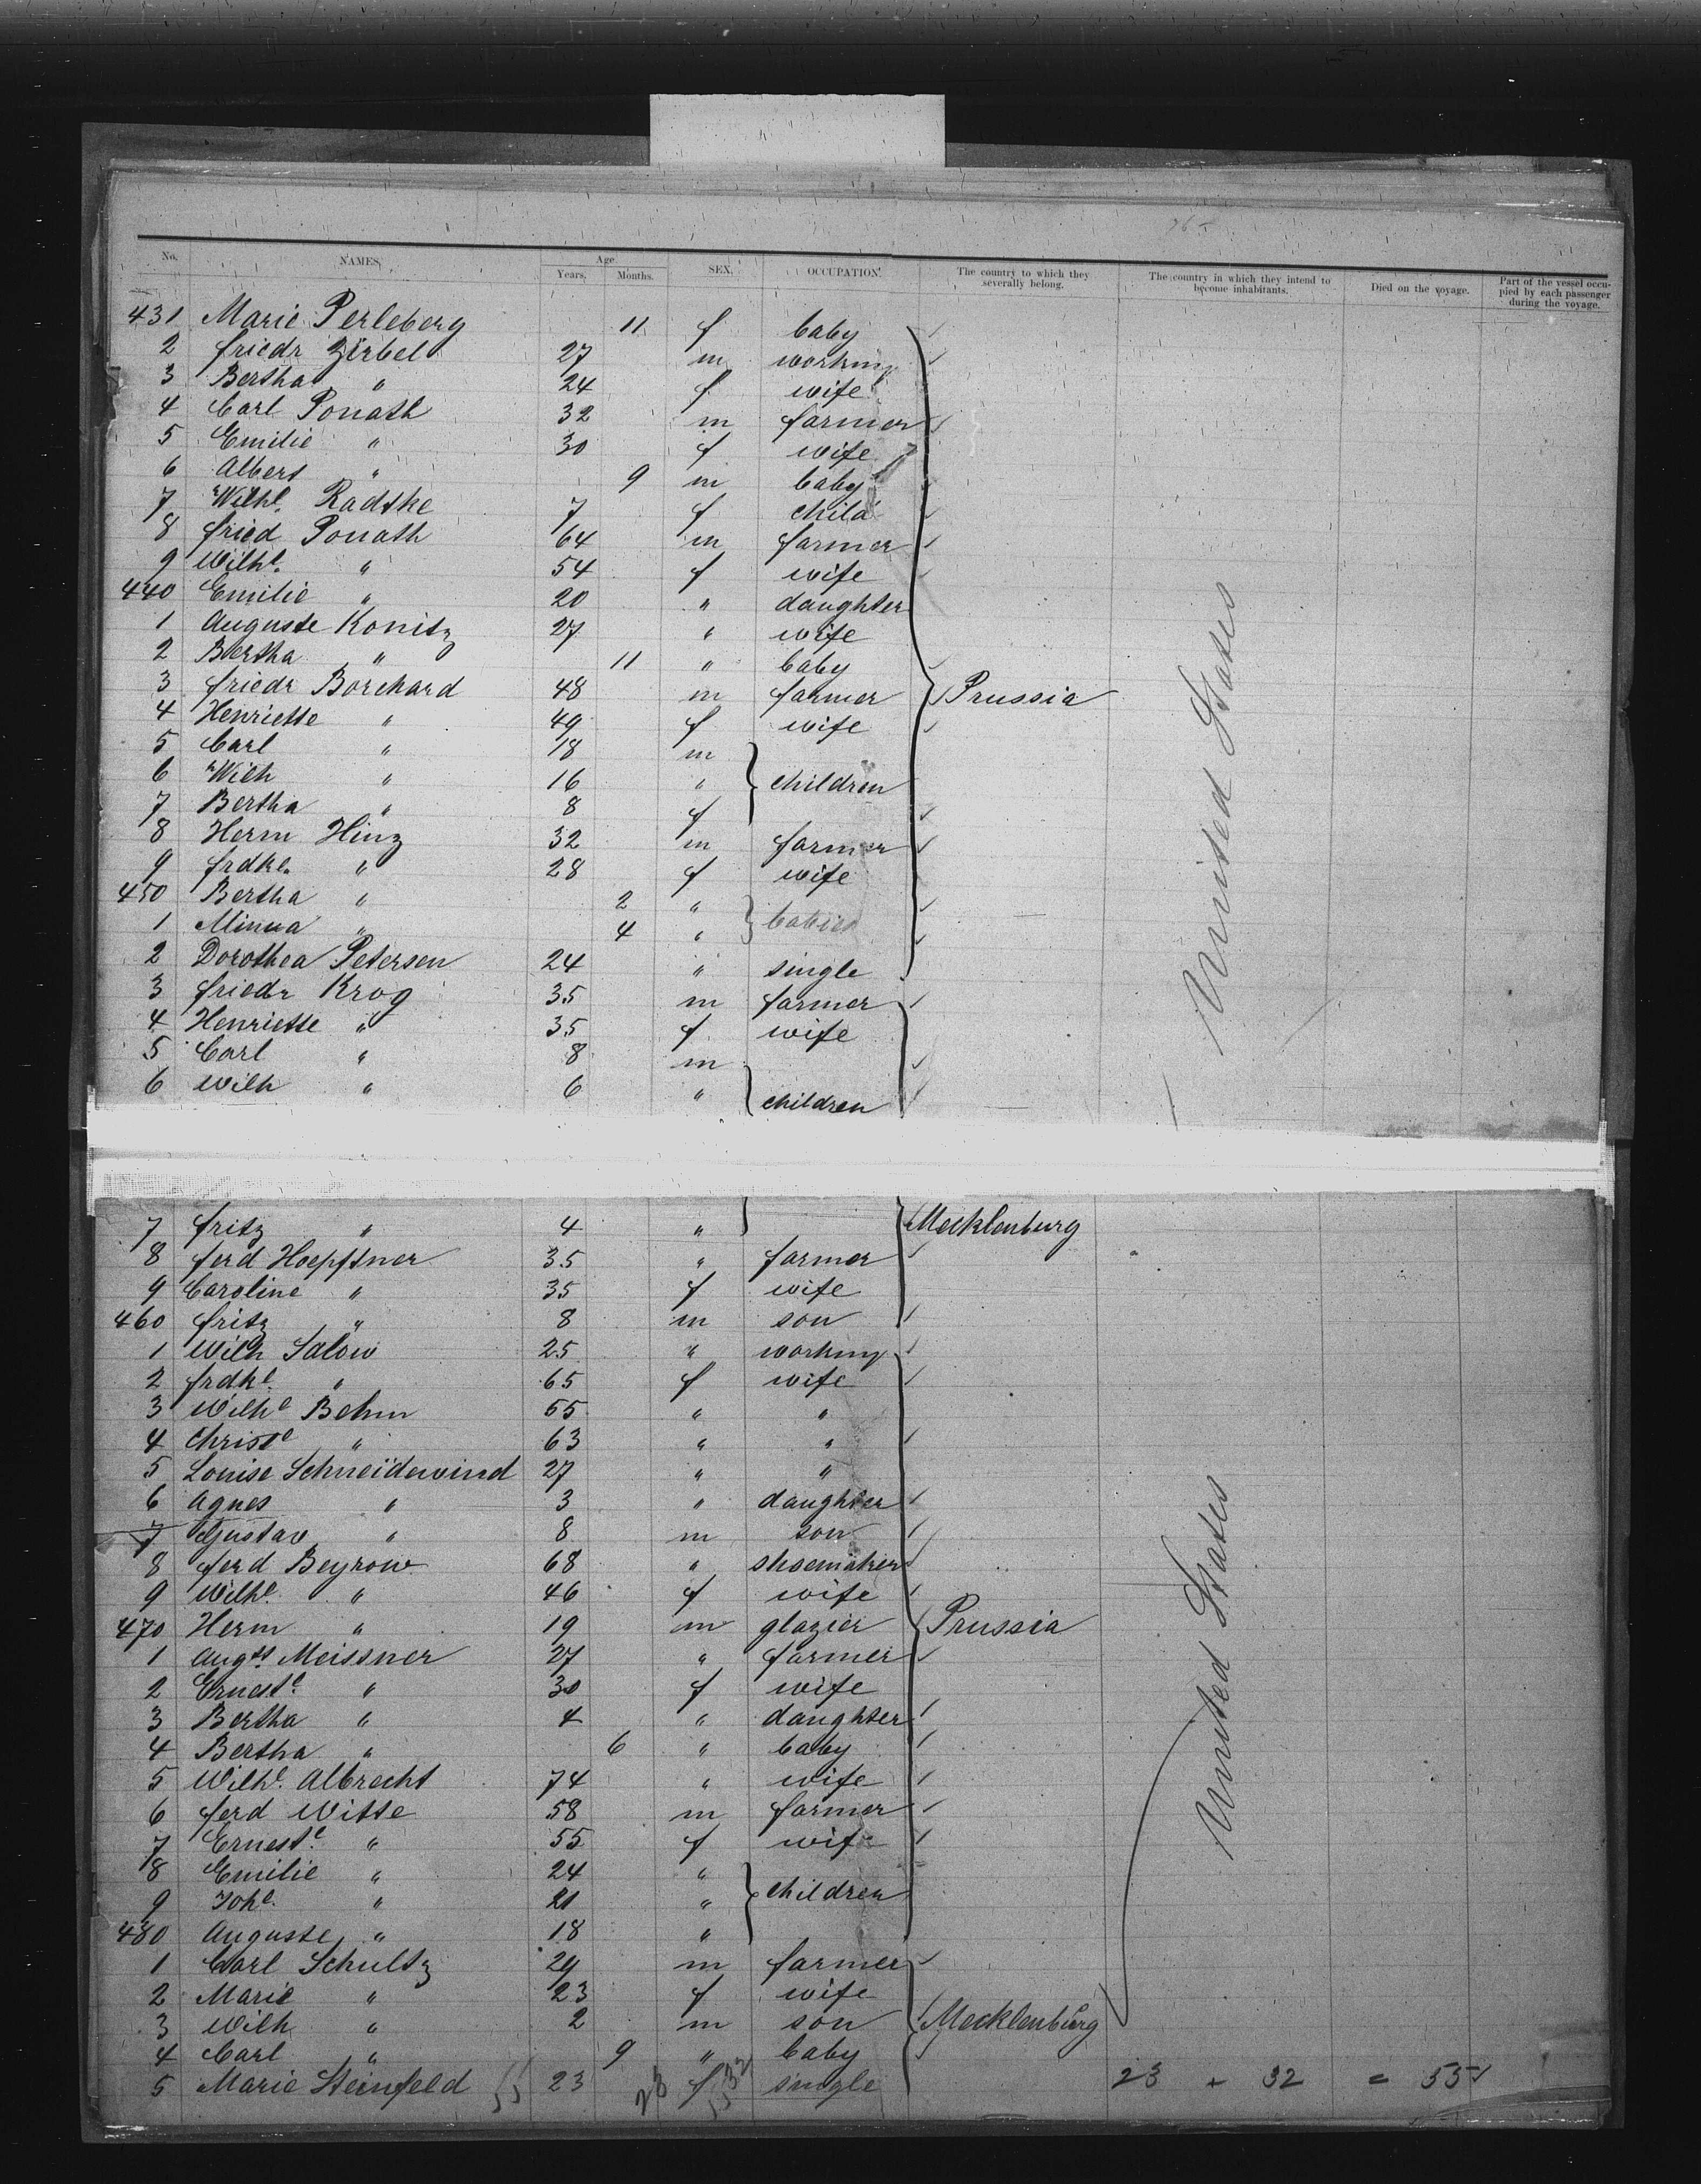 No. NAMES, Age Years, Months. SEX, OCCUPATION The country to which they severally belong. The country in which they intend to become inhabitants. Died on the voyage. Part of the vessel occupied by each passenger during the voyage.
431 Marie Perleberg 11 f baby
2 friedr Zirbel 27 m working
3 Bertha " 24 f wife
4 Carl Ponath 32 m farmer
5 Emilie " 30 f wife
6 Albert " 9 m baby
7 Wilhe. Radtke 7 f child
8 fried Ponath 64 m farmer
9 Wilhe. " 54 f wife
440 Emilie " 20 " daughter
1 Auguste Konitz 27 " wife
2 Bertha " 11 " baby
3 friedr Borchard 48 m farmer Prussia
4 Henriette " 49 f wife
5 Carl " 18 m
6 Wilh " 16 " children
7 Bertha " 8 f
8 Herm Hinz 32 m farmer
9 frdke. " 28 f wife
450 Bertha " 2 " babies
1 Minna " 4 "
2 Dorothea Petersen 24 " single
3 friedr Krog 35 m farmer
4 Henriette " 35 f wife
5 Carl " 8 m
6 Wilh " 6 " children
United States
7 fritz " 4 " Mecklenburg
8 ferd Hoepftner 35 " farmer
9 Caroline " 35 f wife
460 fritz " 8 m son
1 Wilh Salow 25 " working
2 frdke. " 65 f wife
3 Wilhe Behm 55 " "
4 Christe " 63 " "
5 Louise Schneidewind 27 " "
6 Agnes " 3 " daughter
7 Gustav " 8 m son
8 ferd Beyrow 68 " shoemaker
9 Wilhe. " 46 f wife
470 Herm " 19 m glazier Prussia
1 Augst Meissner 27 " farmer
2 Erneste. " 30 f wife
3 Bertha " 4 " daughter
4 Bertha " 6 " baby
5 Wilhe. Albrecht 74 " wife
6 ferd Witte 58 m farmer
7 Erneste. " 55 f wife
8 Emilie " 24 "
9 Johe. " 21 " children
480 Auguste " 18 "
1 Carl Schultz 29 m farmer
2 Marie " 23 f wife
3 Wilh " 2 m son Mecklenburg
4 Carl " 9 " baby
5 Marie Steinfeld 55 23 23 f 32 single 23 + 32 = 55
United States